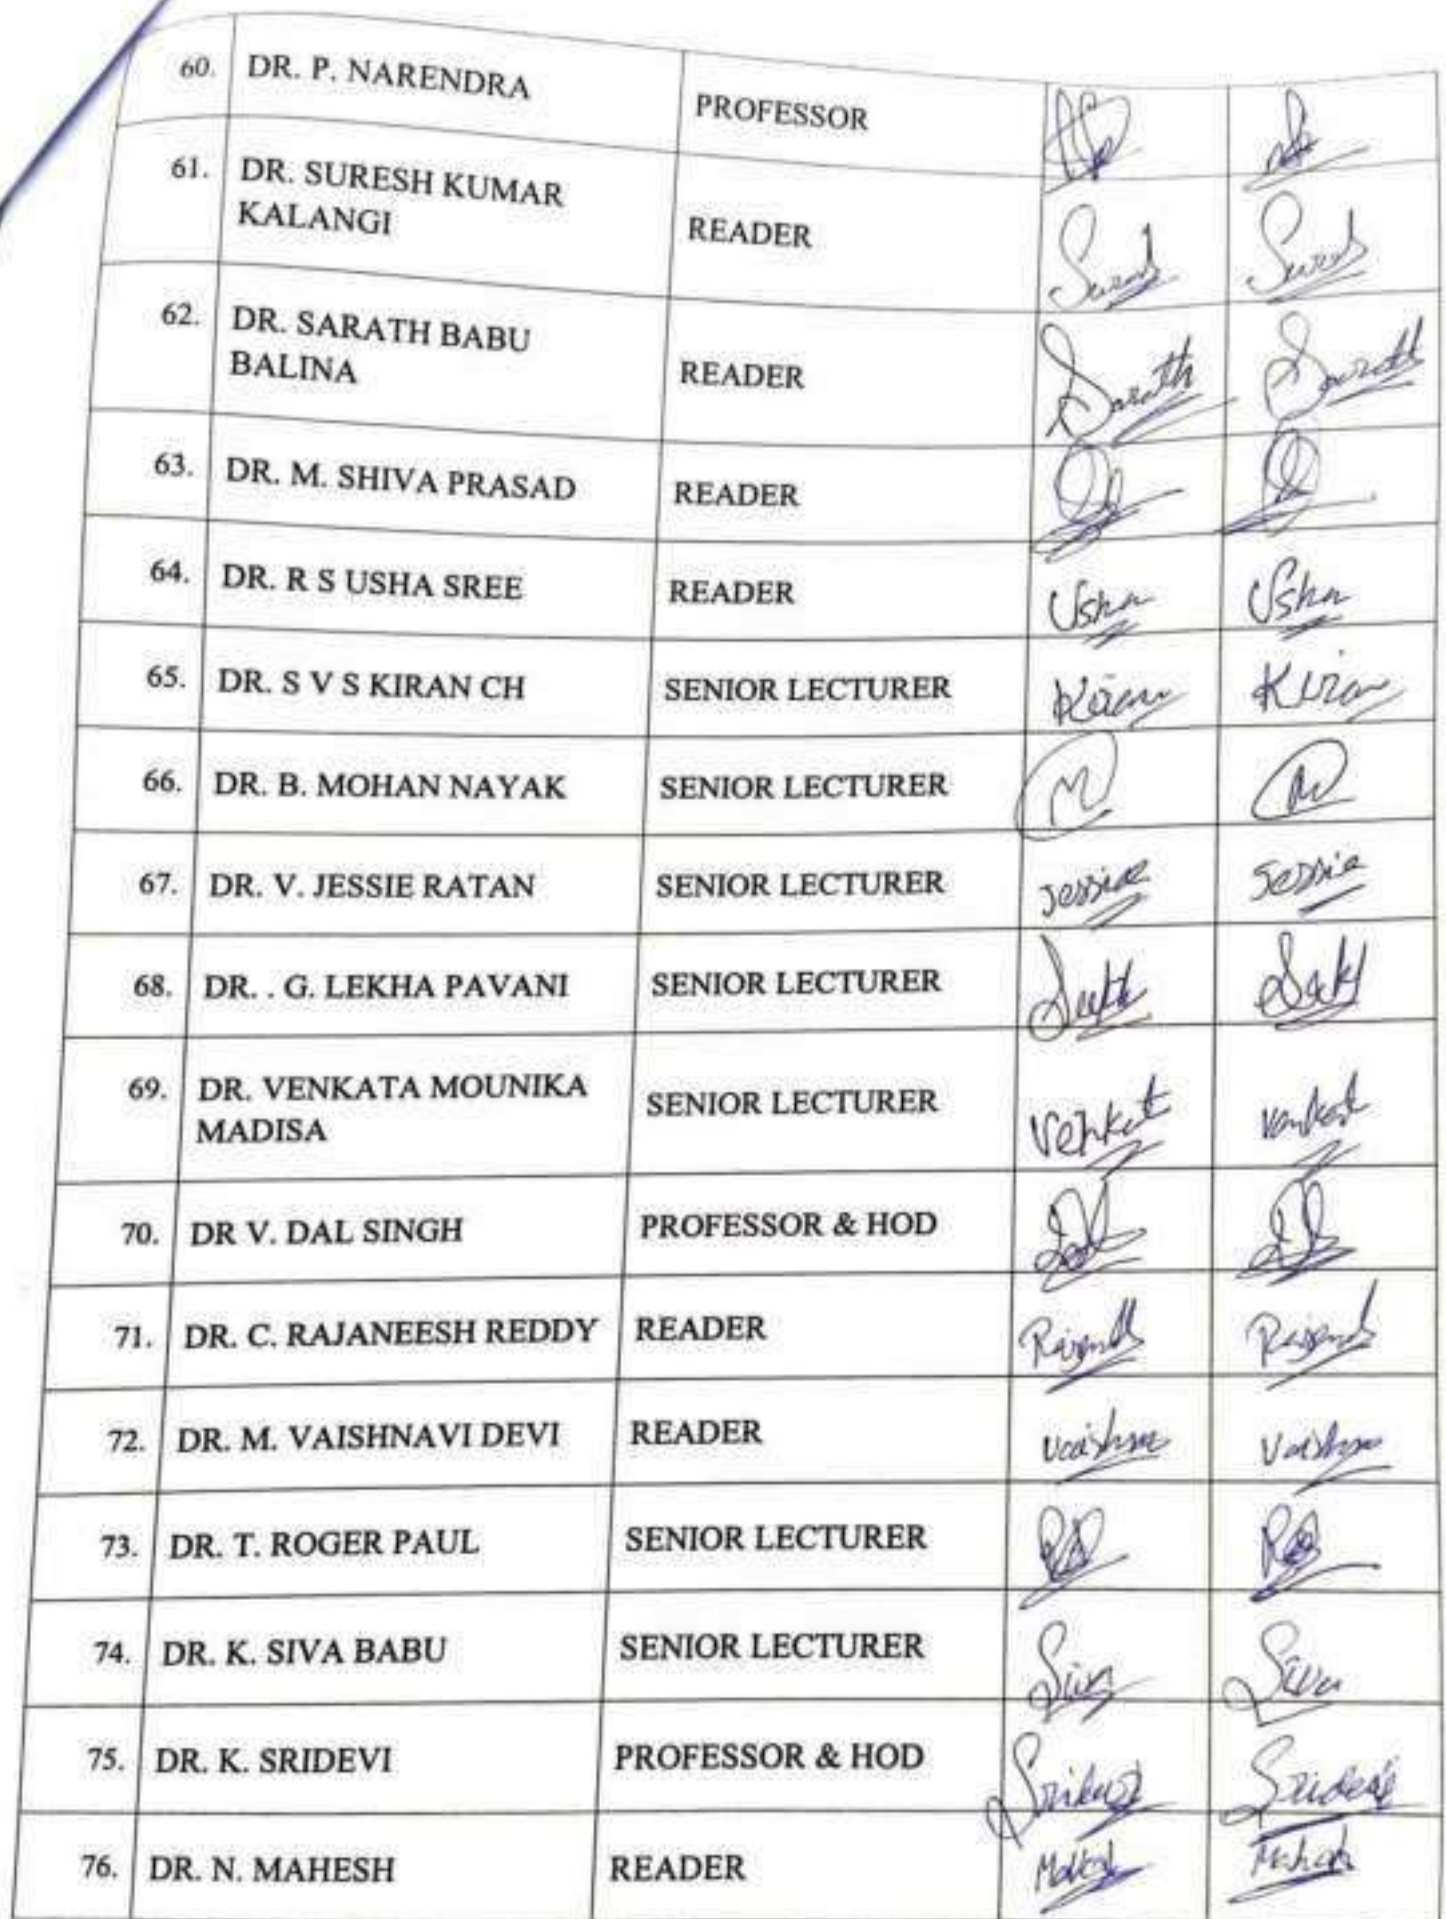 60. DR. P. NARENDRA PROFESSOR
61. DR. SURESH KUMAR
KALANGI READER Suresh Suresh
62. DR. SARATH BABU
BALINA READER Sarath Sarath
63. DR. M. SHIVA PRASAD READER
64. DR. R S USHA SREE READER Usha Usha
65. DR. S V S KIRAN CH SENIOR LECTURER Kiran Kiran
66. DR. B. MOHAN NAYAK SENIOR LECTURER M M
67. DR. V. JESSIE RATAN SENIOR LECTURER Jessie Jessie
68. DR. . G. LEKHA PAVANI SENIOR LECTURER
69. DR. VENKATA MOUNIKA
MADISA SENIOR LECTURER Venkat Venkat
70. DR V. DAL SINGH PROFESSOR & HOD
71. DR. C. RAJANEESH REDDY READER
72. DR. M. VAISHNAVI DEVI READER Vaishna Vaishna
73. DR. T. ROGER PAUL SENIOR LECTURER
74. DR. K. SIVA BABU SENIOR LECTURER Siva Siva
75. DR. K. SRIDEVI PROFESSOR & HOD Sridevi Sridevi
76. DR. N. MAHESH READER Mahesh Mahesh